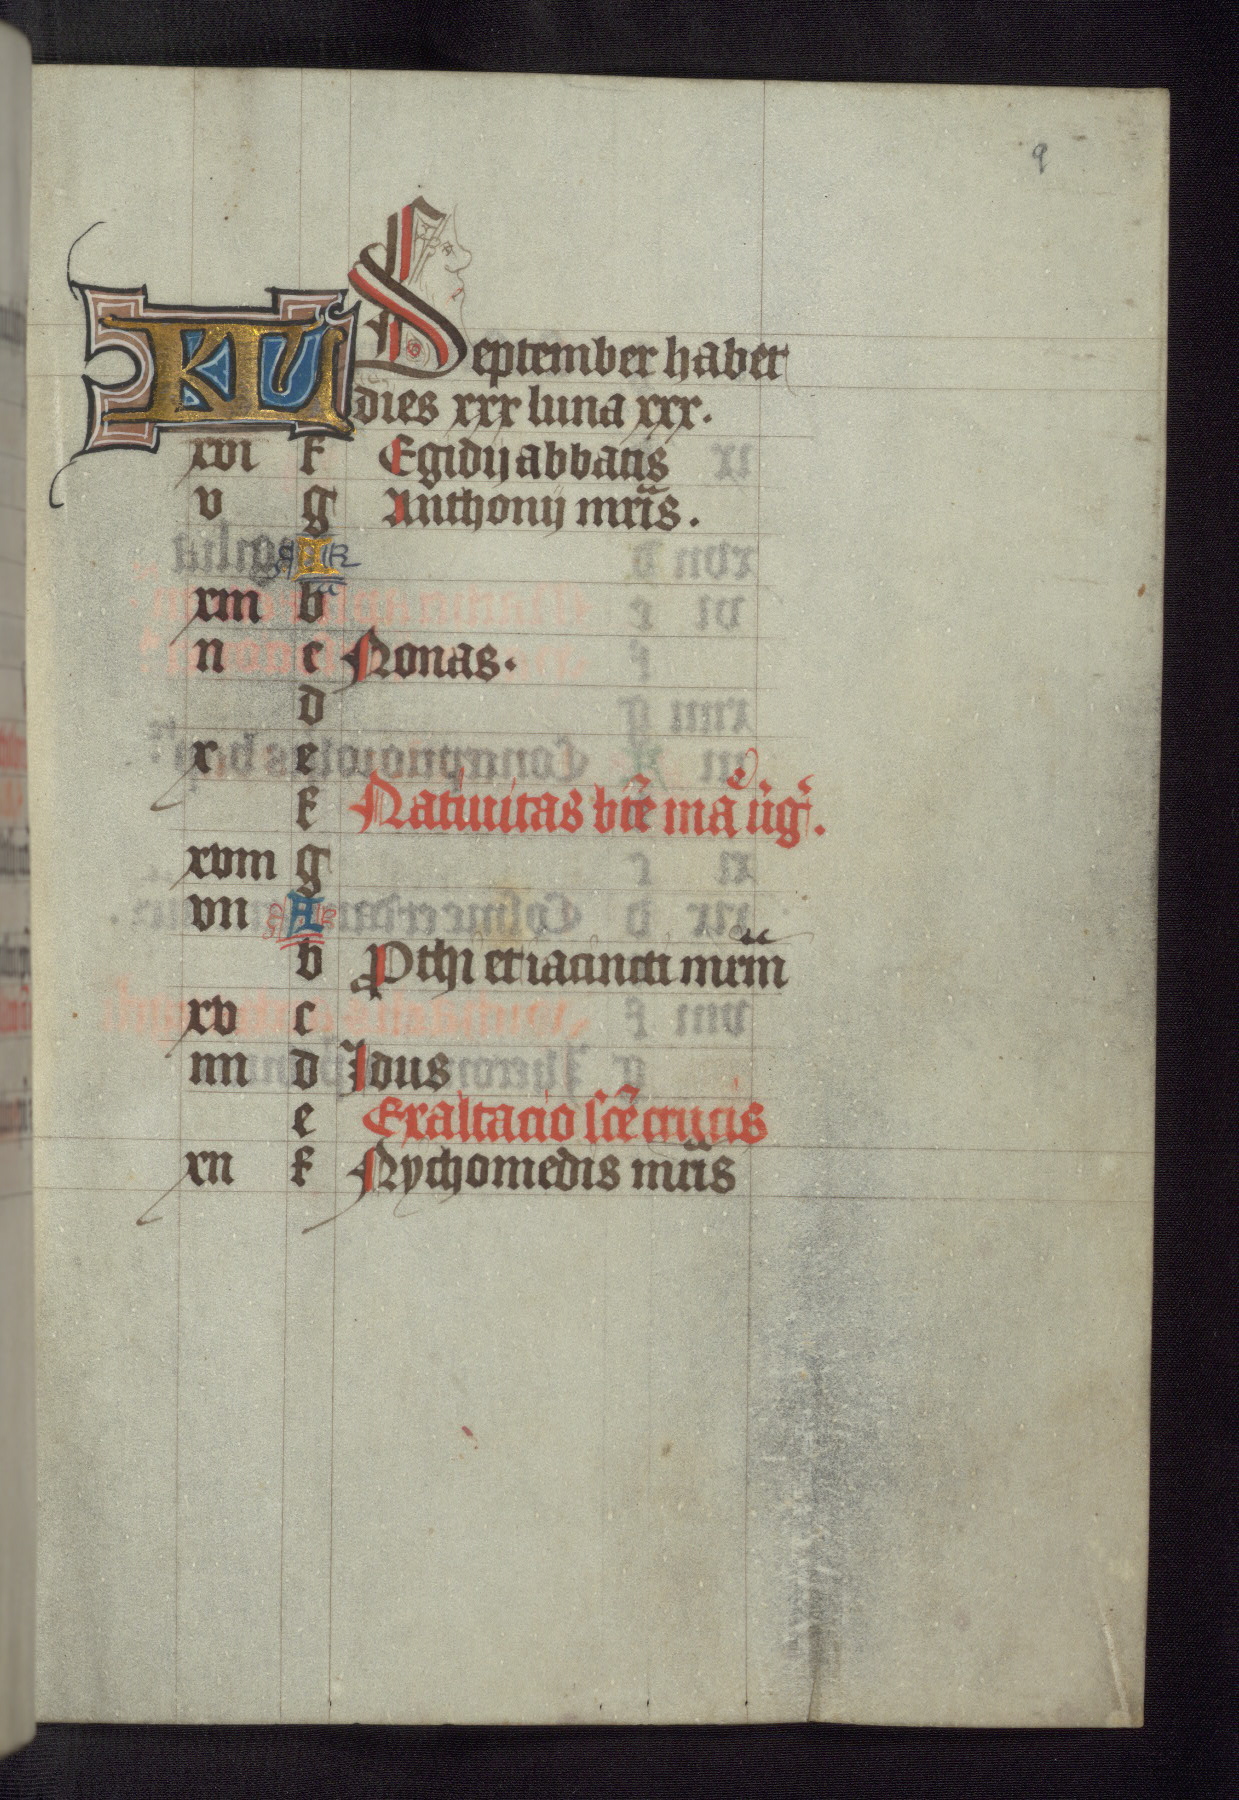 9
KL September habet
dies xxx luna xxx.
xvi f Egidij abbatis
v g Anthonij mr̃is.
A
xiii b
ii c Nonas.
d
x e
f Natiuitas btẽ mã uig̃.
xviii g
vii A
b Pthi et iacincti mr̃m
xv c
iiii d Idus
e Exaltacio sctẽ crucis
xii f Nychomedis mr̃is